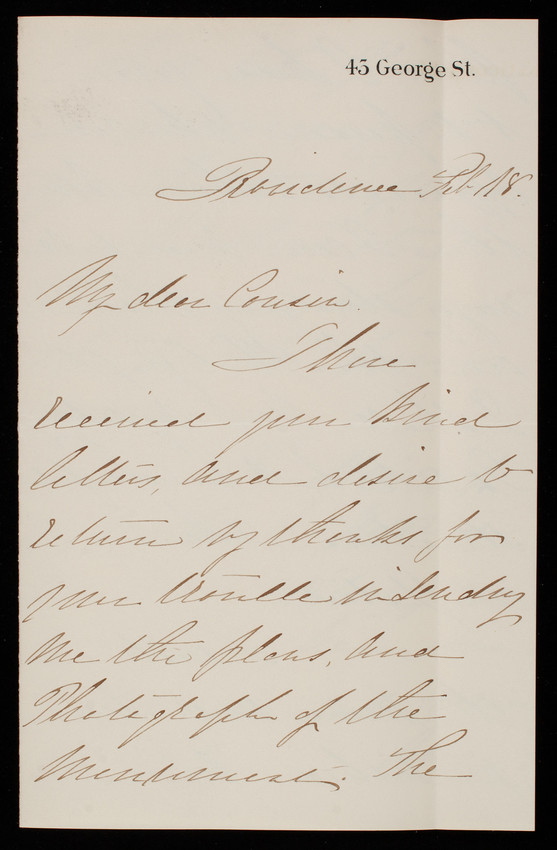 45 George St.
Providence Feb 18.
My dear Cousin.
I have
received your kind
letters, and desire to
return my thanks for
your trouble in sending
me the plans, and
Photographs of the
Monument. The